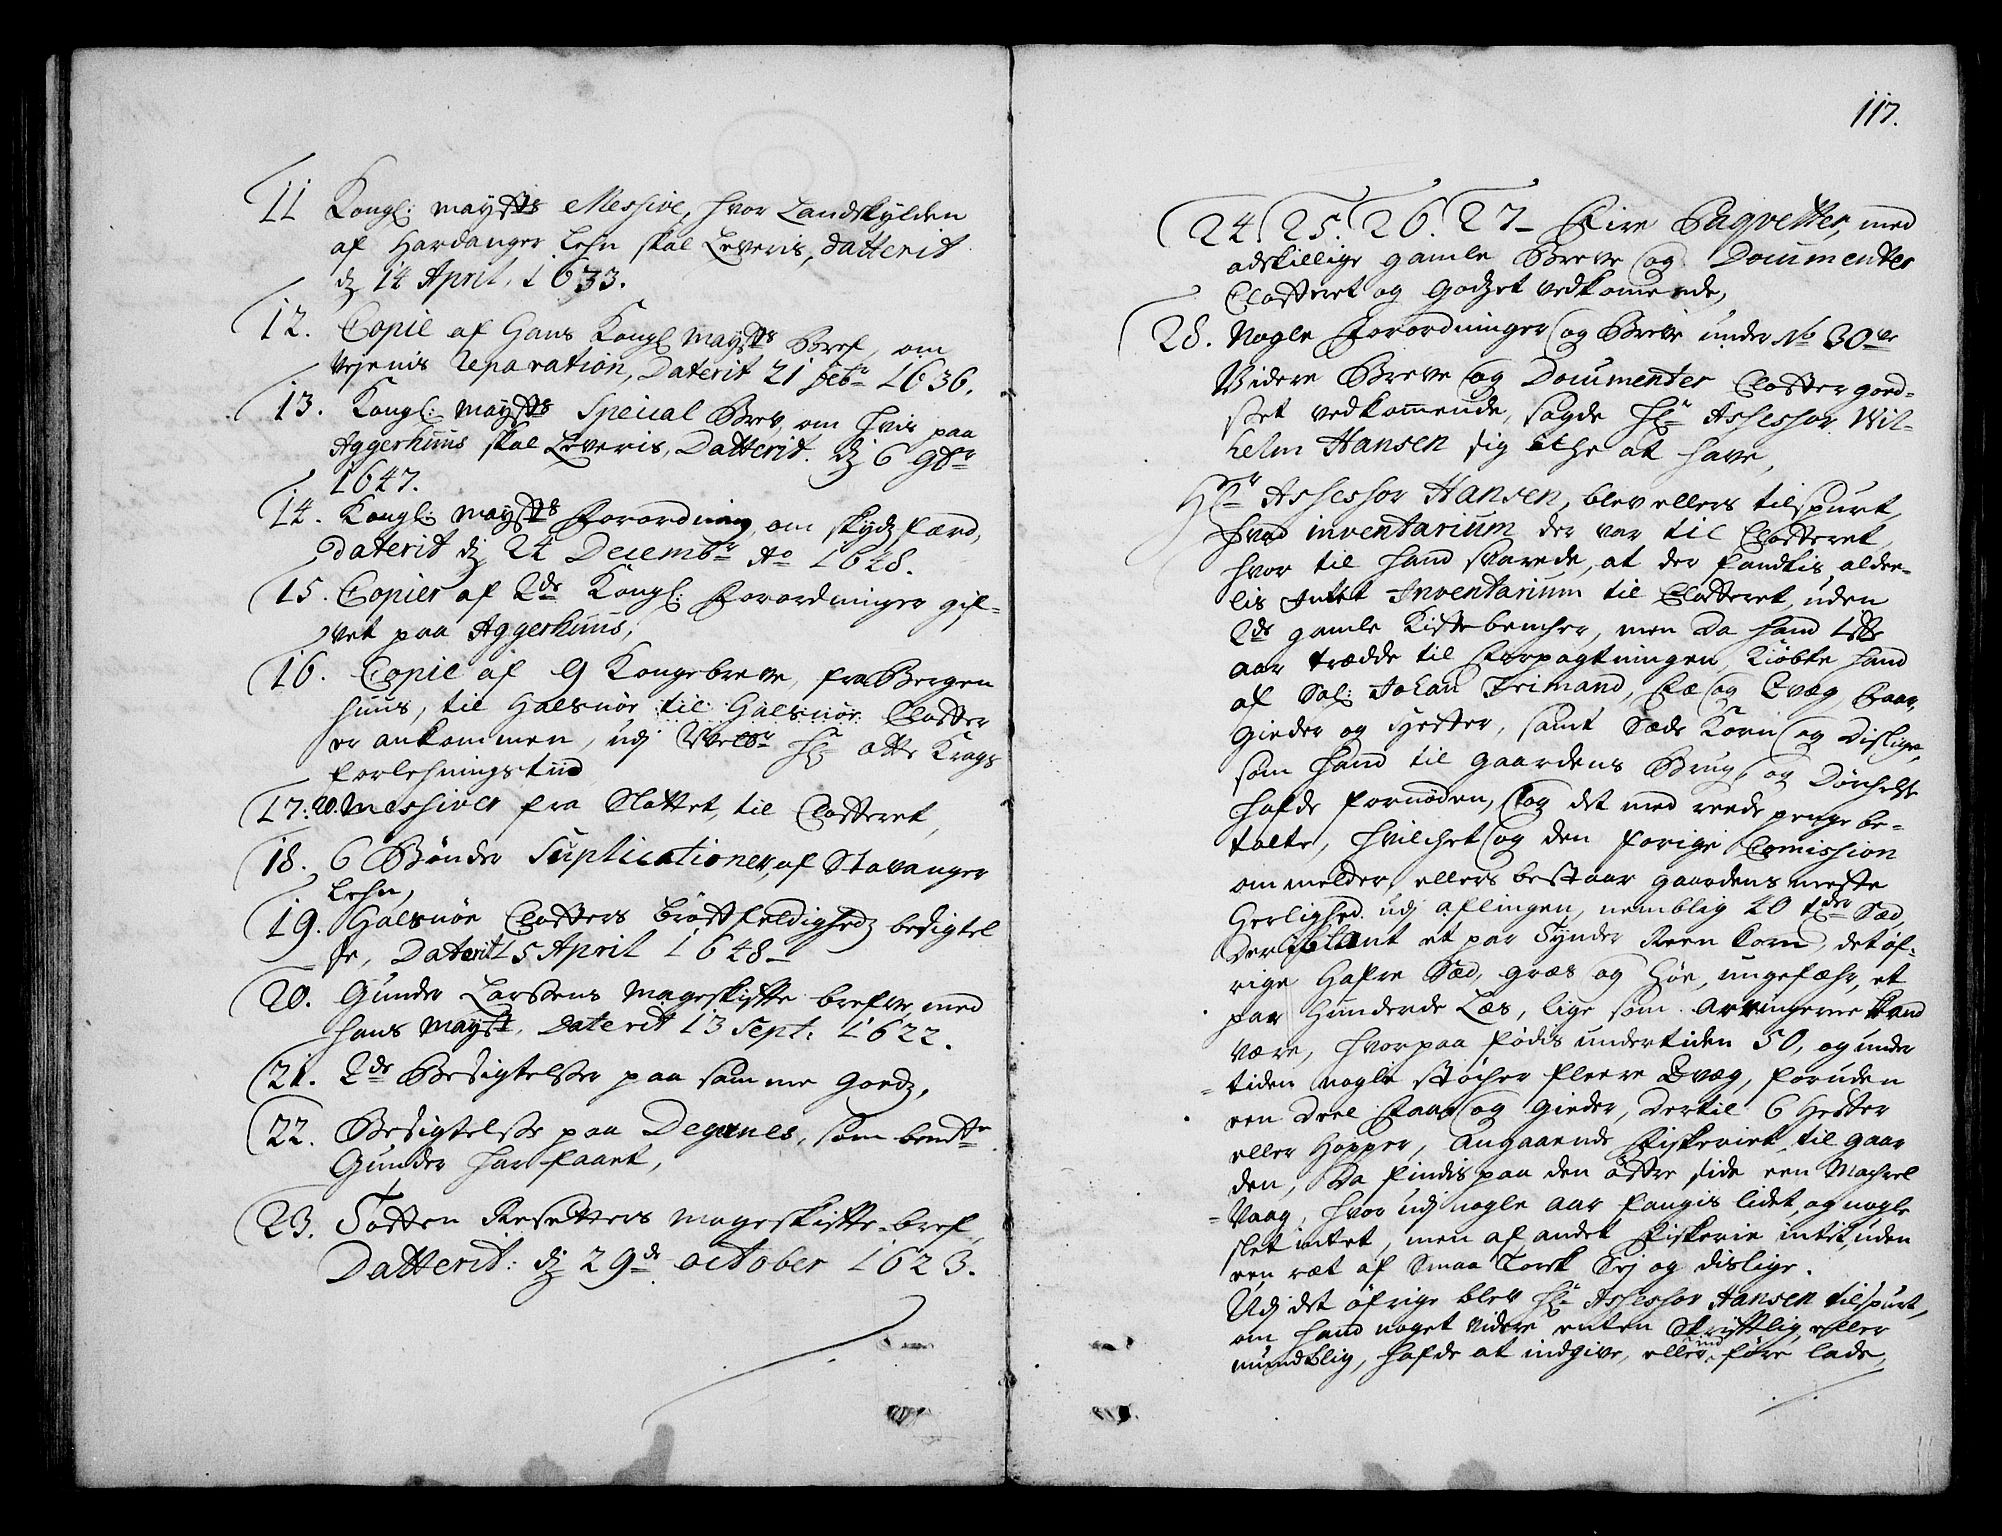 11 Kongl: mayts Messive, hvor Landskylden
af Hardanger Lehn skal Leveris, datterit
dj 14 April, 1633.
12. Copie af Hans Kongl mayts Bref, om
Vejenis Reparation, Daterit 21 febr 1636.
13. Kongl: mayts Special Brev, om hvis paa
Aggerhuus skal Leveris, Datterit. dj 6 9br
1647.
14. Kongl: mayts Forordning, om skydsfærd,
daterit dj 24 Decembr Ao 1648.
15. Copier af 2de Kongl: Forordninger gif-
vet paa Aggerhuus,
16. Copie af 9 Kongebreve, fra Bergen
huus, til Halsnöe til Halsnöe Closter
er ankommen, udj Velbr Hr Otte Krags
forlehningstiid
17: 20. Messiver fra Slottet, til Closteret,
18. 6 Bönder Suplicationer, af Stavanger
Lehn,
19. Halsnöe Closters bröstfeldighedz besigtel
se, Daterit 15 April 1648-
20. Gunder Larsens mageskiffte brefve med
hans mayst, Daterit 13 Sept: 1622.
21. 2de Besigtelser paa samme goedz,
22. Besigtelse paa Degernes, som bendte
Gunder har faaet,
23. Totten Resetters mageskiffte-bref,
Datterit: dj 29de october 1623.
117.
24. 25. 26. 27- Fire Paqvetter, med
adskillige gamle Breve og Documenter
Closteret og Godzet vedkomende,
28. Nogle Forordninger og Breve under No 30ve
Videre Breve og Documenter Closter goed-
set vedkommende, sagde Hr Assessor Wil-
helm Hansen sig icke at have,
Hr Assessor Hansen, blev ellers tilspurt
hvad inventarium der var til Closteret
hvor til hand svarede, at der fandtis alde-
lis Intet Inventarium til Closteret, uden
2de gamle Kistebencher, men da hand 1ste
aar trædde til Forpagtningen, Kiöbte hand
af Sal: Johan Frimand, Fæ og Qvæg, Faar,
gieder og Hester, samt Sæde Korn og dislige,
som hand til gaardens Brug og Dörchelse
hafde fornöden, og det med reede penge be-
talte, hvilchet og den forige Comission
ommelder, ellers bestaar gaardens meste
Herlighed udj aflingen, nemblig 40 tdr Sæd,
der iblant et par Tynder Reen korn, det öf-
rige Hafre Sæd, græs og Höe, ungefæhr, et
par Hunderde Læs, lige som Arringerne kand
være, hvorpaa födis undertiden 50, og under
tiden nogle støcher fleere Qvæg, foruden
een deel Faar og gieder, dertil 6 Hester
eller Hopper, Angaaende Fiskeriet, til gaar
den, da findis paa den östre side een Machrel
Vaag, hvor udj nogle aar fangis lidet, og nogle
slet intet, men af andet Fiskerie intet, uden
een ræt af Smaa Torsk Sej og dislige.
Udj det öfrige blev Hr Assessor Hansen tilspurt,
om hand noget videre enten Skrifftlig, eller
mundtlig, hafde at indgive, eller före lade,